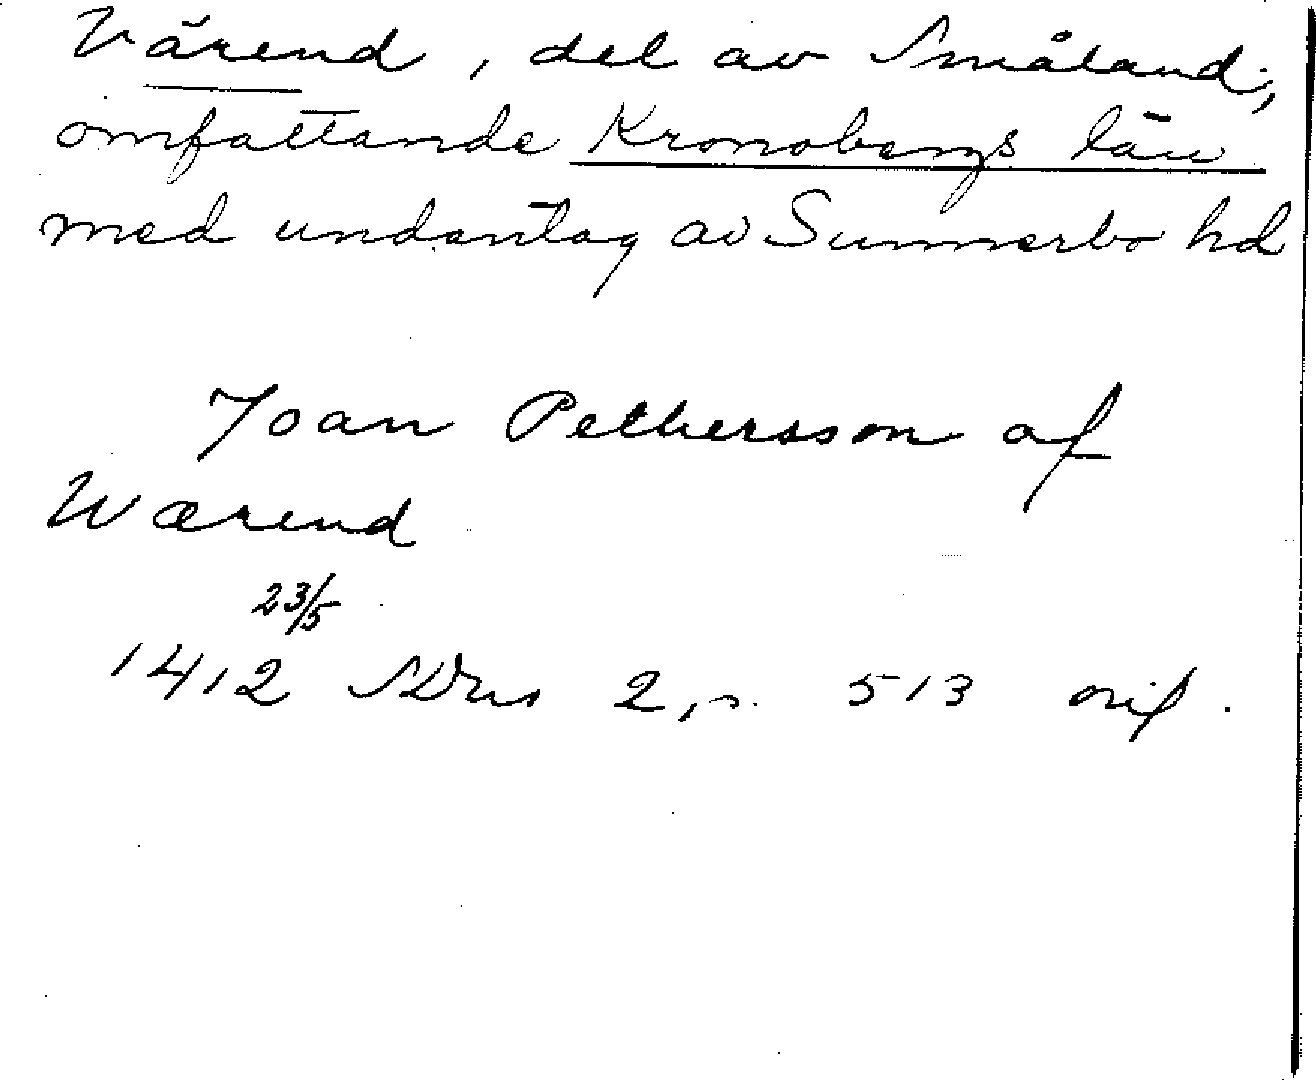 Värend, del av Småland,
omfattande Kronobergs län
med undantag av Sunnerbo hd
Joan Pethersson af
Wærend
23/5
1412 SDns 2, s. 513 orig.